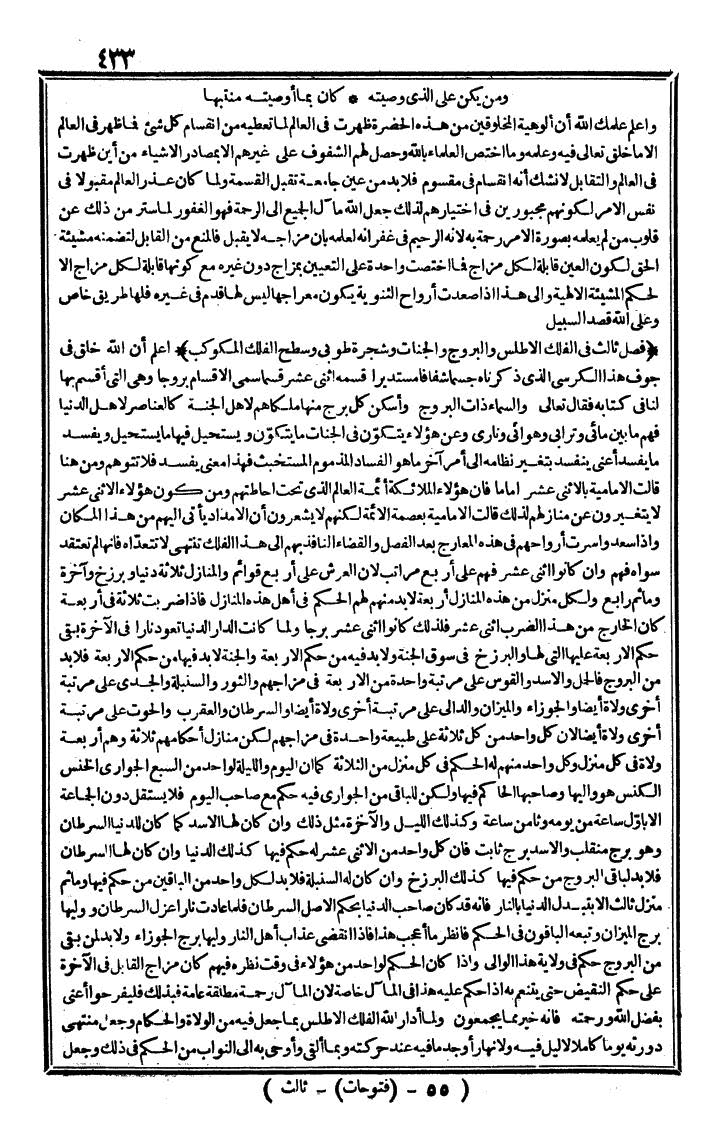 ٤٣٣
ومن يكن على الذى وصيته * كان بما أوصيته منتبها
واعلم علمك الله أن ألوهية المخلوقين من هذه الحضرة ظهرت فى العالم لما تعطيه من انقسام كل شئ فما ظهر فى العالم
الا ما خلق تعالى فيه وعلمه وما اختص العلماء بالله وحصل لهم الشفوف على غيرهم الا بمصادر الاشياء من أين ظهرت
فى العالم والتقابل لا نشك أنه انقسام فى مقسوم فلا بد من عين جامعة تقبل القسمة ولما كان عذر العالم مقبولا فى
نفس الامر لكونهم مجبورين فى اختيارهم لذلك جعل الله مآل الجميع الى الرحمة فهو الغفور لما ستر من ذلك عن
قلوب من لم يعلمه بصورة الامر رحمة به لانه الرحيم فى غفرانه لعلمه بان مزاجه لا يقبل فالمنع من القابل لتضمنه مشيئة
الحق لكون العين قابلة لكل مزاج فما اختصت واحدة على التعيين بمزاج دون غيره مع كونها قابلة لكل مزاج الا
لحكم المشيئة الالهية والى هذا اذا صعدت أرواح الثنوية يكون معراجها ليس لها قدم فى غيره فلها طريق خاص
وعلى الله قصد السبيل
﴿فصل ثالث فى الفلك الاطلس والبروج والجنات وشجرة طوبى وسطح الفلك المكوكب﴾ اعلم أن الله خلق فى
جوف هذا الكرسى الذى ذكرناه جسما شفافا مستديرا قسمه اثنى عشر قسما سمى الاقسام بروجا وهى التى أقسم بها
لنا فى كتابه فقال تعالى والسماء ذات البروج وأسكن كل برج منها ملكا هم لاهل الجنة كالعناصر لاهل الدنيا
فهم ما بين مائى وترابى وهوائى ونارى وعن هؤلاء يتكوّن فى الجنات ما يتكوّن ويستحيل فيها ما يستحيل ويفسد
ما يفسد أعنى ينفسد بتغير نظامه الى أمر آخر ما هو الفساد المذموم المستخبث فهذا معنى يفسد فلا تتوهم ومن هنا
قالت الامامية بالاثنى عشر اماما فان هؤلاء الملائكة أئمة العالم الذى تحت احاطتهم ومن كون هؤلاء الاثنى عشر
لا يتغيرون عن منازلهم لذلك قالت الامامية بعصمة الائمة لكنهم لا يشعرون أن الامداد يأتى اليهم من هذا المكان
واذا سعدوا سرت أرواحهم فى هذه المعارج بعد الفصل والقضاء النافذ بهم الى هذا الفلك تنتهى لا تتعدّاه فانها لم تعتقد
سواه فهم وان كانوا اثنى عشر فهم على أربع مراتب لان العرش على أربع قوائم والمنازل ثلاثة دنيا وبرزخ وآخرة
وما ثم رابع ولكل منزل من هذه المنازل أربعة لا بد منهم لهم الحكم فى أهل هذه المنازل فاذا ضربت ثلاثة فى أربعة
كان الخارج من هذا الضرب اثنى عشر فلذلك كانوا اثنى عشر برجا ولما كانت الدار الدنيا تعود نارا فى الآخرة بقى
حكم الاربعة عليها التى لها والبرزخ فى سوق الجنة ولا بد فيه من حكم الاربعة والجنة لا بد فيها من حكم الاربعة فلا بد
من البروج فالحمل والاسد والقوس على مرتبة واحدة من الاربعة فى مزاجهم والثور والسنبلة والجدى على مرتبة
أخرى ولاة أيضا والجوزاء والميزان والدالى على مرتبة أخرى ولاة أيضا والسرطان والعقرب والحوت على مرتبة
أخرى ولاة أيضا لان كل واحد من كل ثلاثة على طبيعة واحدة فى مزاجهم لكن منازل أحكامهم ثلاثة وهم أربعة
ولاة فى كل منزل وكل واحد منهم له الحكم فى كل منزل من الثلاثة كما ان اليوم والليلة لواحد من السبع الجوارى الخنس
الكنس هو واليها وصاحبها الحاكم فيها ولكن للباقى من الجوارى فيه حكم مع صاحب اليوم فلا يستقل دون الجماعة
الا بأوّل ساعة من يومه وثامن ساعة وكذلك الليل والآخرة مثل ذلك وان كان لها الاسد كما كان للدنيا السرطان
وهو برج منقلب والاسد برج ثابت فان كل واحد من الاثنى عشر له حكم فيها كذلك الدنيا وان كان لها السرطان
فلا بد لباقى البروج من حكم فيها كذلك البرزخ وان كان له السنبلة فلا بد لكل واحد من الباقين من حكم فيها وما ثم
منزل ثالث الا بتبدل الدنيا بالنار فانه قد كان صاحب الدنيا بحكم الاصل السرطان فلما عادت نارا عزل السرطان ووليها
برج الميزان وتبعه الباقون فى الحكم فانظر ما أعجب هذا فاذا انقضى عذاب أهل النار وليها برج الجوزاء ولا بد لمن بقى
من البروج حكم فى ولاية هذا الوالى واذا كان الحكم لواحد من هؤلاء فى وقت نظره فيهم كان مزاج القابل فى الآخرة
على حكم النقيض حتى يتنعم به اذا حكم عليه هذا فى المآل خاصة لان المآل رحمة مطلقة عامة فبذلك فليفرحوا أعنى
بفضل الله ورحمته فانه خير مما يجمعون ولما أدار الله الفلك الاطلس بما جعل فيه من الولاة والحكام وجعل منتهى
دورته يوما كاملا لا ليل فيه ولا نهار أوجد ما فيه عند حركته وبما ألقى وأوحى به الى النواب من الحكم فى ذلك وجعل
( ٥٥ - (فتوحات) - ثالث )